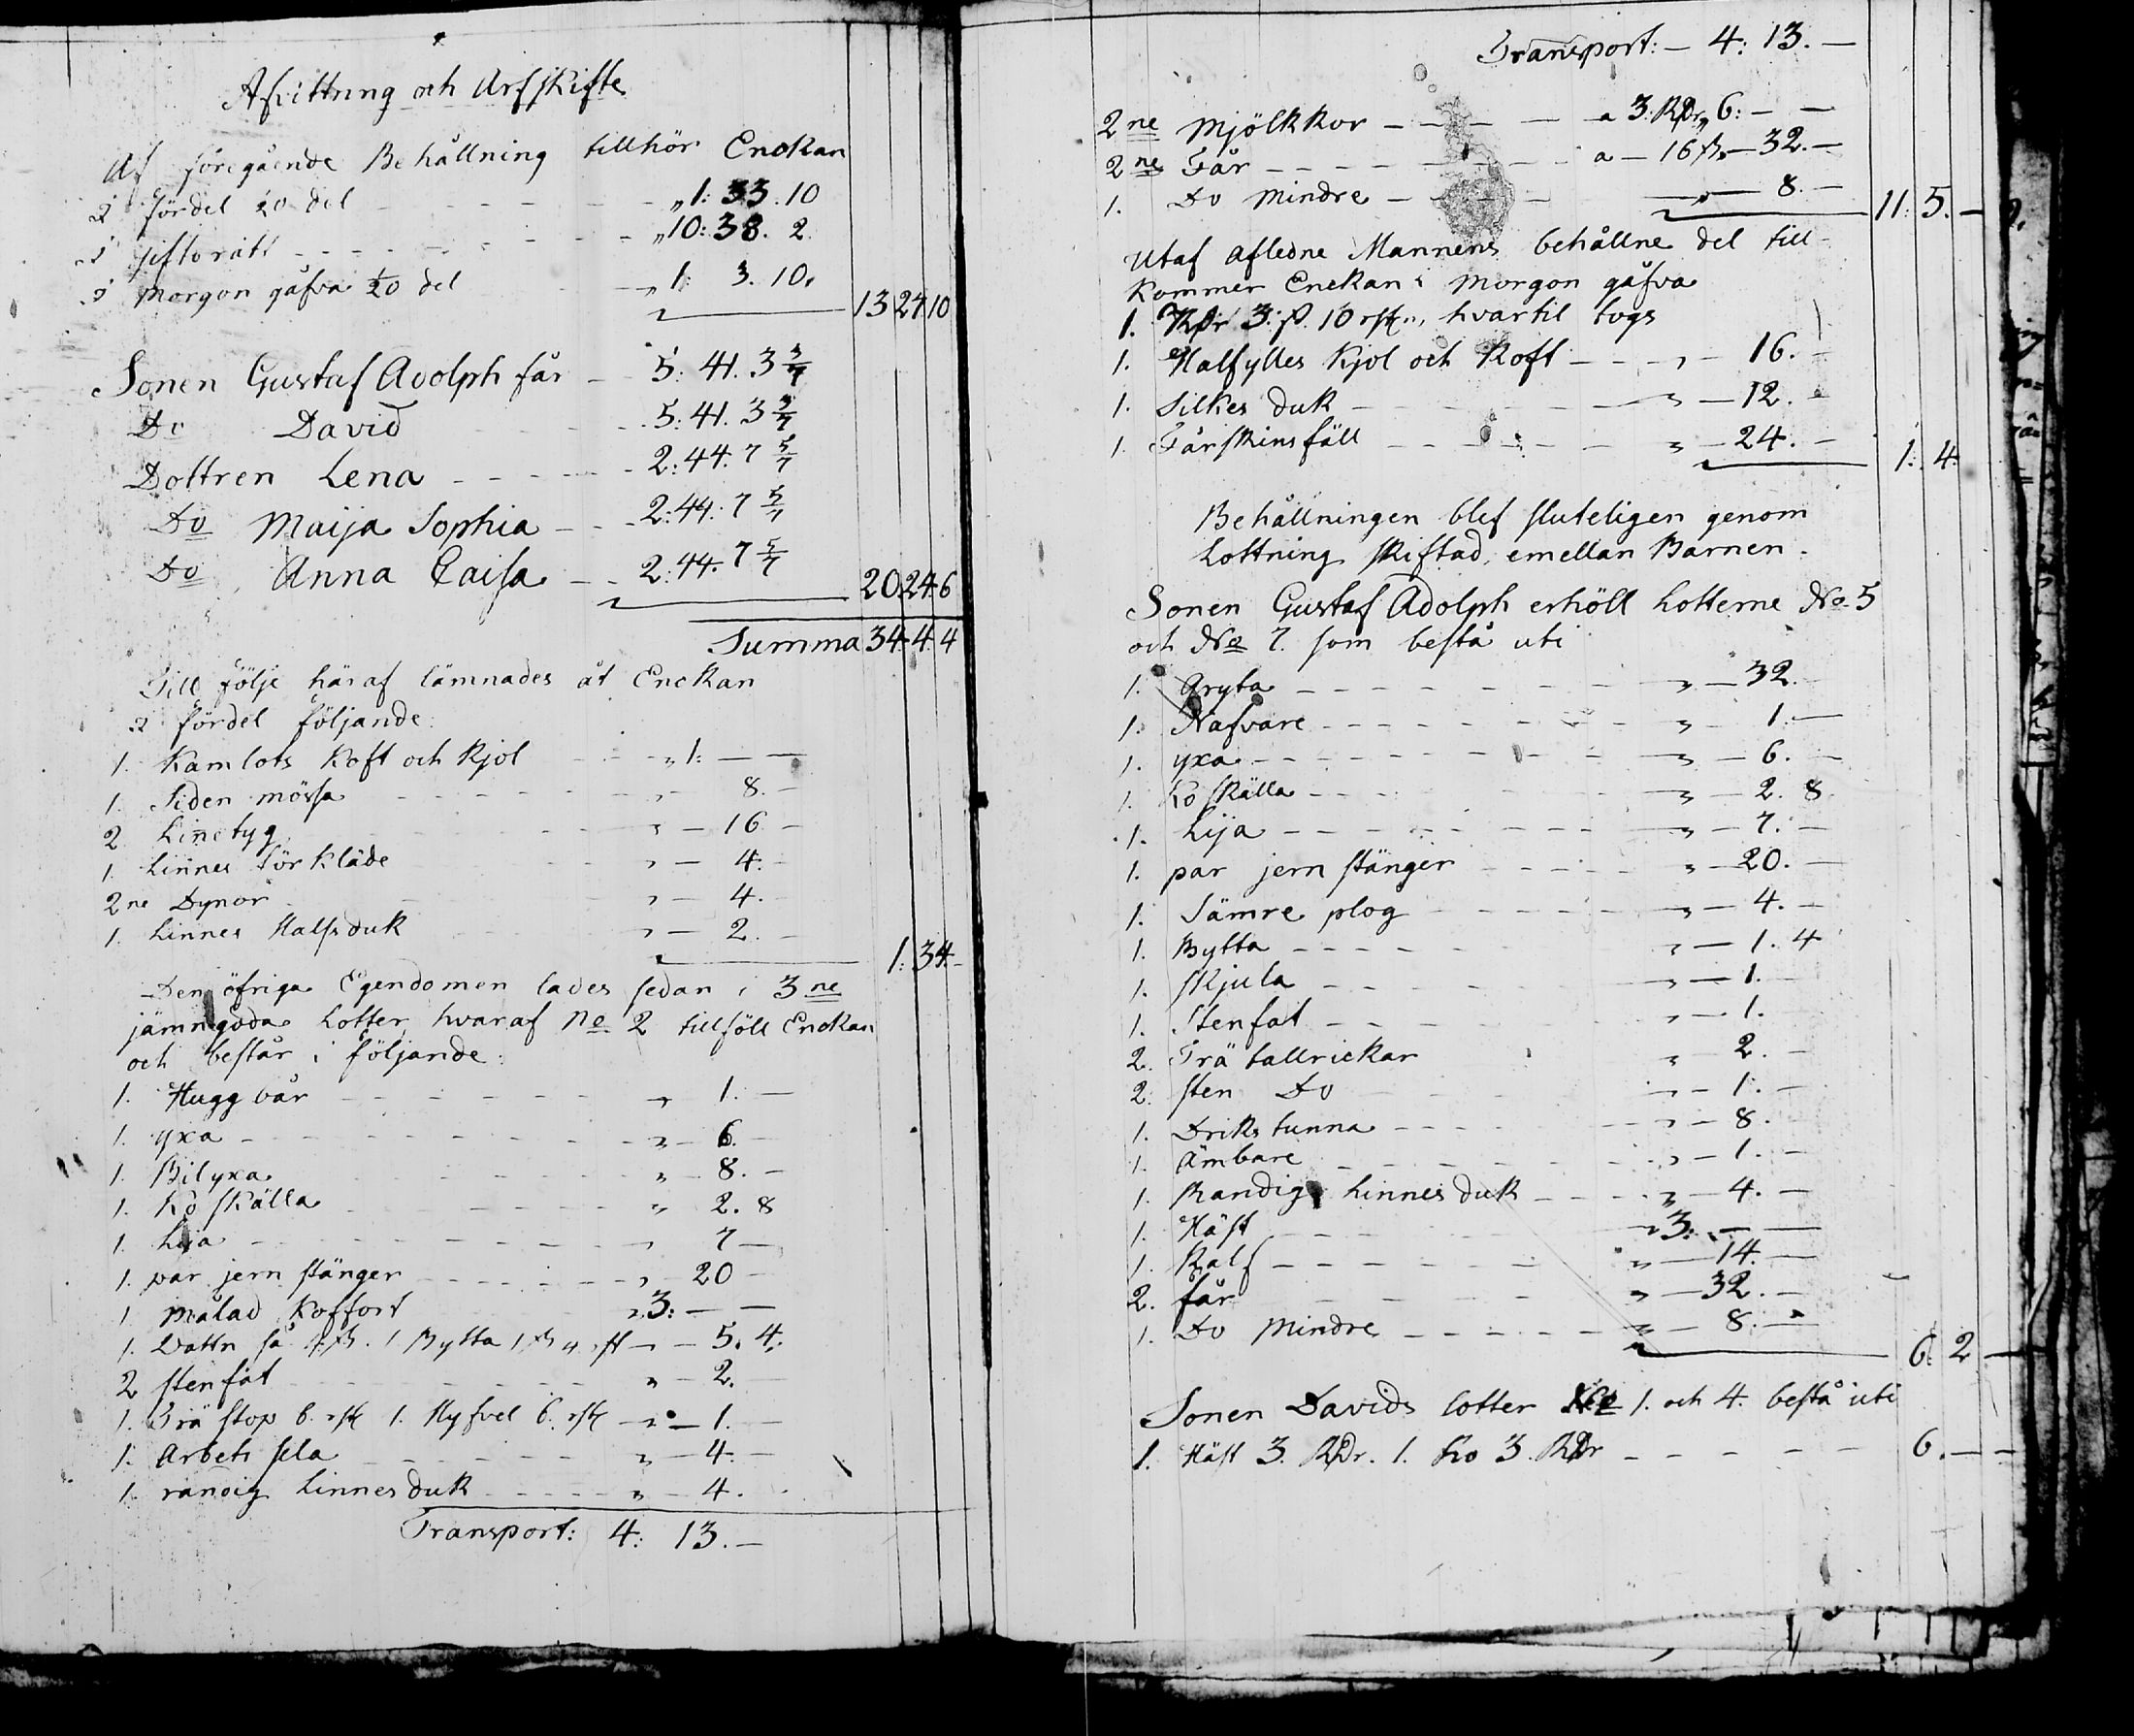 Afvittring och Arfskifte
Af föregående Behållning tillhör Enckan
I fördel 1/20 del „1: 33. 10
I giftorätt „10: 38. 2.
I Morgon gåfva 1/20 del „1: 3. 10.
13 24 10
Sonen Gustaf Adolph får 5: 41. 3 3/7
Do David 5: 41. 3 3/7
Dottren Lena 2: 44. 7 5/7
Do Maija Sophia 2: 44: 7 5/7
Do Anna Caisa 2: 44. 7 5/7
20. 24 6
Summa 34. 4. 4
Till följe häraf lämnades åt Enckan
I fördel följande:
1. Kamlots Koft och Kjol „1: — —
1. Siden mössa „ — 8. —
2 Linetyg „ — 16 —
1. Linnes Förkläde „ — 4. —
2ne Dynor „ — 4. —
1. Linnes Halsduk „ — 2. —
1: 34. —
Den öfriga Egendomen lades sedan i 3ne
jämngoda Lotter, hvaraf No 2 tillföll Enckan
och består i följande:
1. Huggbår „ 1. —
1. yxa „ — 6. —
1. Bilyxa „ — 8. —
1. Koskälla „ 2. 8
1. Lija „ 7 —
1. par jern stänger „ 20 —
1 Målad Koffort „3: — —
1. Vattn så 4 ß. 1 Bytta 1 ß 4 rst „ — 5. 4.
2 stenfat „ — 2. —
1. Trä stop 6. rst 1. Hyfvel 6. rst „ — 1. —
1. Arbets sela „ — 4. —
1. randig Linnes duk „ — 4.
Transport: 4: 13. —
Transport: — 4: 13. —
2ne Mjölkkor a 3: RDr „ 6: — —
2ne Får a — 16 ß „ — 32. —
1. Do Mindre „ — 8. —
11: 5. —
Utaf afledne Mannens behållne del till-
kommer Enckan i Morgon gåfva
1. RDr 3. ß. 10 rst., hvartil togs
1. Halfylles Kjol och Koft „ — 16. —
1. Silkes duk „ — 12. —
1. Fårskinsfäll „ — 24. —
1: 4.
Behållningen blef sluteligen genom
Lottning skiftad, emellan Barnen.
Sonen Gustaf Adolph erhöll Lotterne No 5
och No 7. som bestå uti
1. Gryta „ — 32.
1. Nafvare „ 1. —
1. yxa „ — 6. —
1. Koskälla „ — 2. 8
1. Lija „ — 7. —
1. par jern stänger „ — 20. —
1. Sämre plog „ — 4. —
1. Bytta „ — 1. 4
1. Skjula „ — 1. —
1. Stenfat „ — 1.
2. Trä tallrickar „ 2. —
2. sten Do „ — 1. —
1. Driks tunna „ — 8.
1. Ämbare „ — 1. —
1. Randig Linnes duk „ — 4. —
1. Häst „3: — —
1. Kalf „ — 14. —
2. får „ — 32. —
1. Do Mindre „ — 8. —
6: 2 —
Sonen Davids lotter No 1. och 4. bestå uti
1. Häst 3. RDr. 1. Ko 3. RDr 6. — —